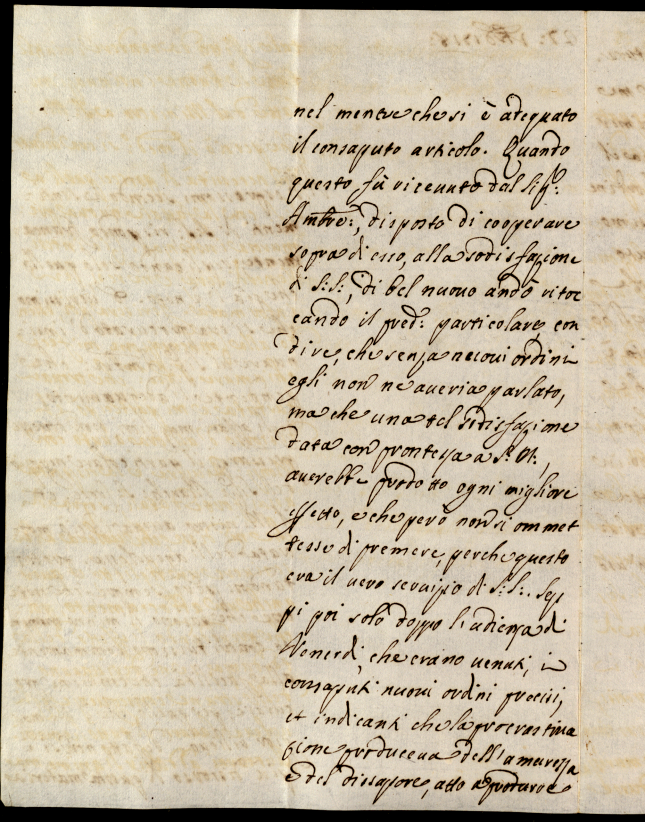 nel mentre che si è adequato
il consaputo articolo. Quando
questo fù ricevuto dal Sig.r
Ambre:, disposto di cooperare
sopra di esso, alla sodisfazione
di S: S:, di bel nuovo andò ritoc
cando il pred: particolare, con
dire, che senza nuovi ordini
egli non ne averia parlato,
ma che una tal sodisfazione
data con prontezza a S: M:,
averebbe prodotto ogni migliore
effetto, e che però non si ommet
tesse di premere, perche questo
era il vero servizio di S: S:. Sep
pi poi solo doppo l'udienza di
Venerdì, che erano venuti, i
consaputi nuovi ordini precisi,
et indicanti che la procrastina
zione produceva dell'amarezza
e del dissapore, atto a produrre